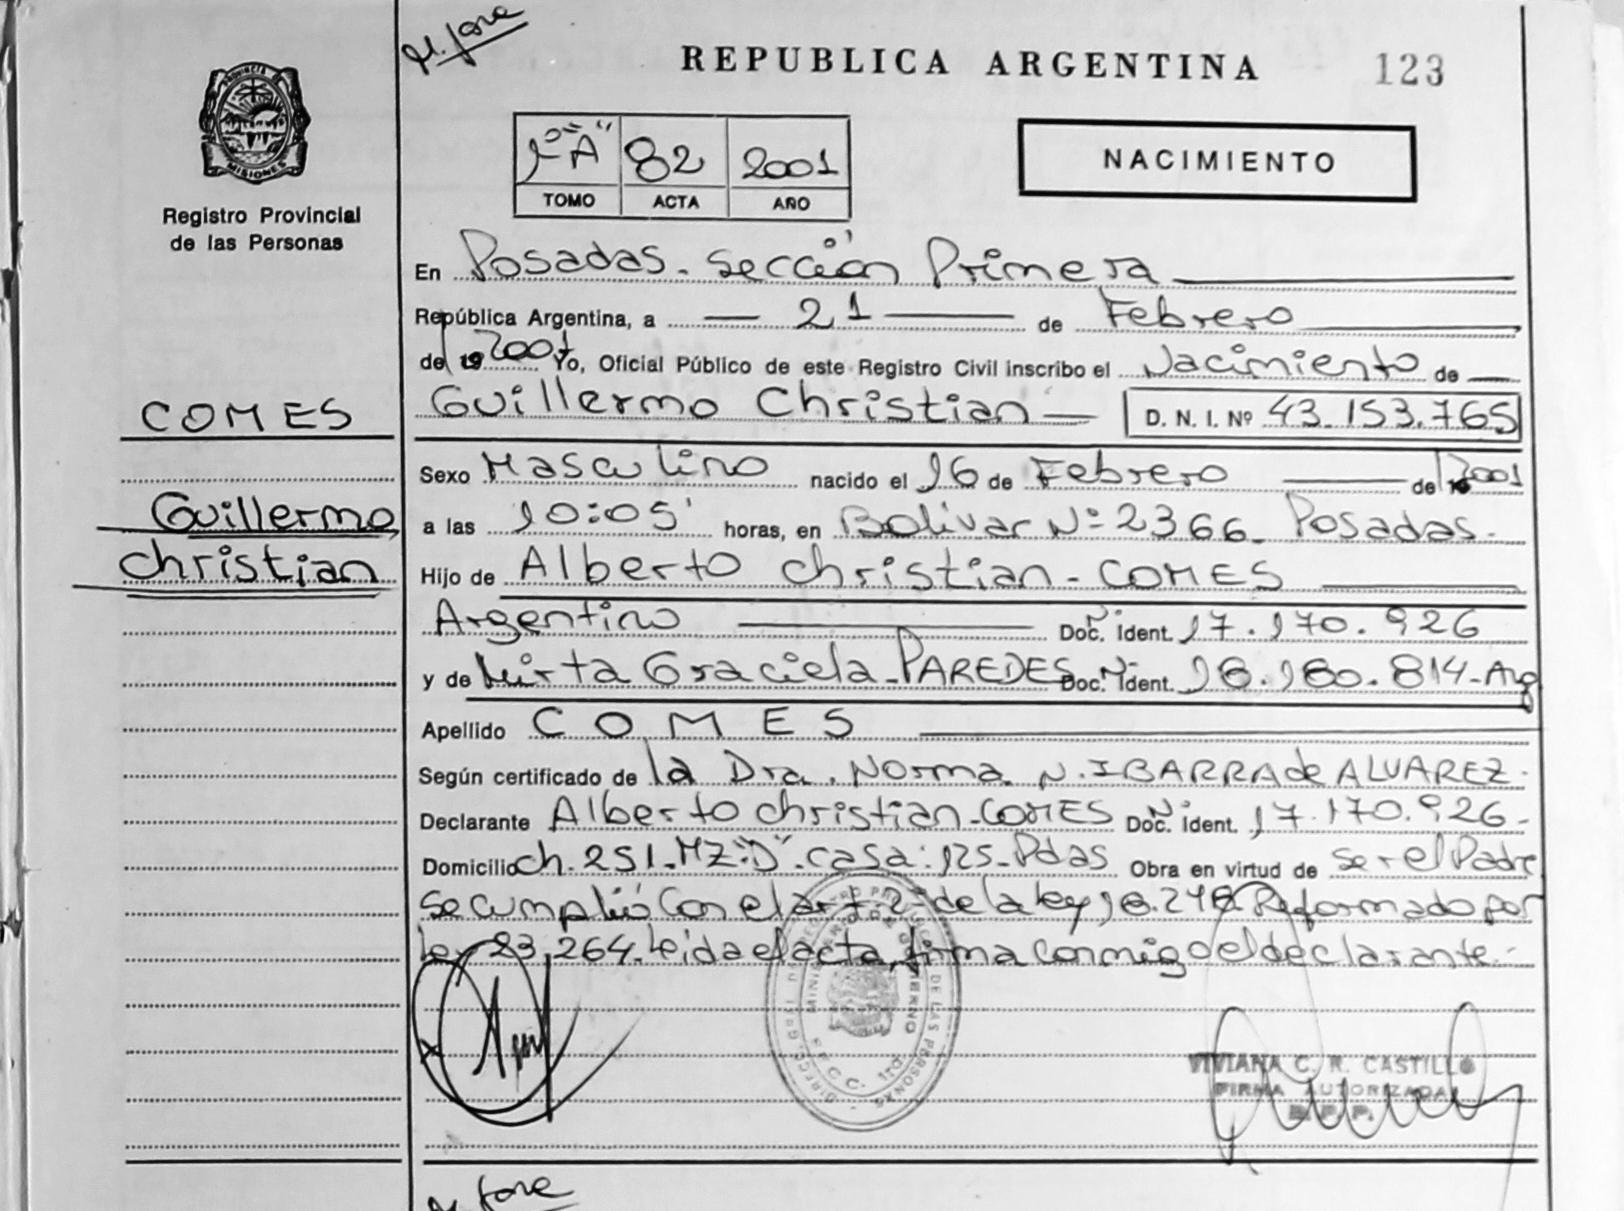 REPUBLICA ARGENTINA 123
PROVINCIA DE MISIONES
Registro Provincial
de las Personas
1º "A" 82 2001
TOMO ACTA AÑO
NACIMIENTO
En Posadas. Sección Primera
República Argentina, a 21 de Febrero
de 19 2001 Yo, Oficial Público de este Registro Civil inscribo el Nacimiento de
Guillermo Christian D. N. I. Nº 43.153.765
COMES
Guillermo
Christian
Sexo Masculino nacido el 16 de Febrero de 2001
a las 10:05' horas, en Bolívar Nº 2366. Posadas.
Hijo de Alberto Christian - COMES
Argentino Doc. Ident. 17.170.926
y de Mirta Graciela - PAREDES Doc. Ident. 18.180.814 - Arg
Apellido COMES
Según certificado de la Dra. Norma N. IBARRA de ALVAREZ.
Declarante Alberto Christian - COMES Doc. Ident. 17.170.926 -
Domicilio Ch. 251. MZ "D". casa: 125. Pdas Obra en virtud de ser el Padre
se cumplió con el art 2º de la ley 18.248 Reformado por
ley 23.264. Leída el acta, firma conmigo el declarante.-
MINISTERIO DE GOBIERNO
DE LAS PERSONAS
VIVIANA C. R. CASTILLO
FIRMA AUTORIZADA